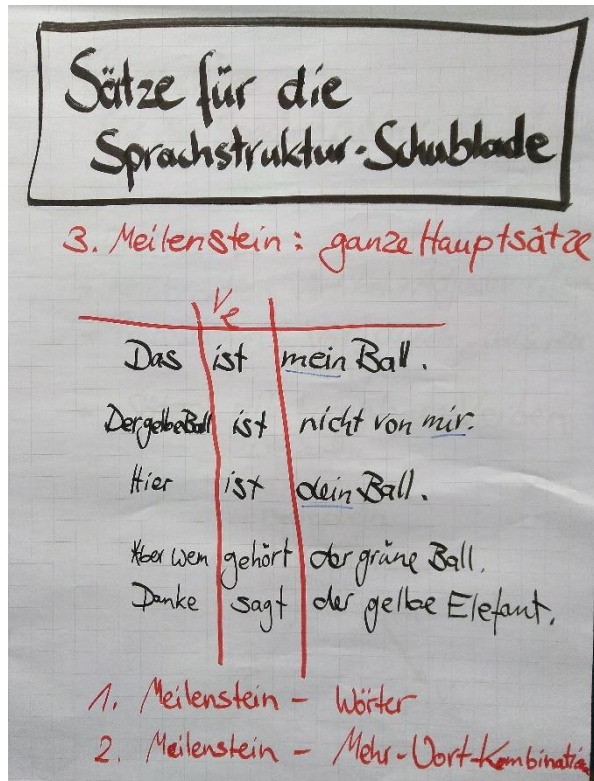 Sätze für die
Sprachstruktur-Schublade
3. Meilenstein: ganze Hauptsätze
Ve
Das ist mein Ball.
Der gelbe Ball ist nicht von mir.
Hier ist dein Ball.
Aber wem gehört der grüne Ball.
Danke sagt der gelbe Elefant.
1. Meilenstein - Wörter
2. Meilenstein - Mehr-Wort-Kombinatio